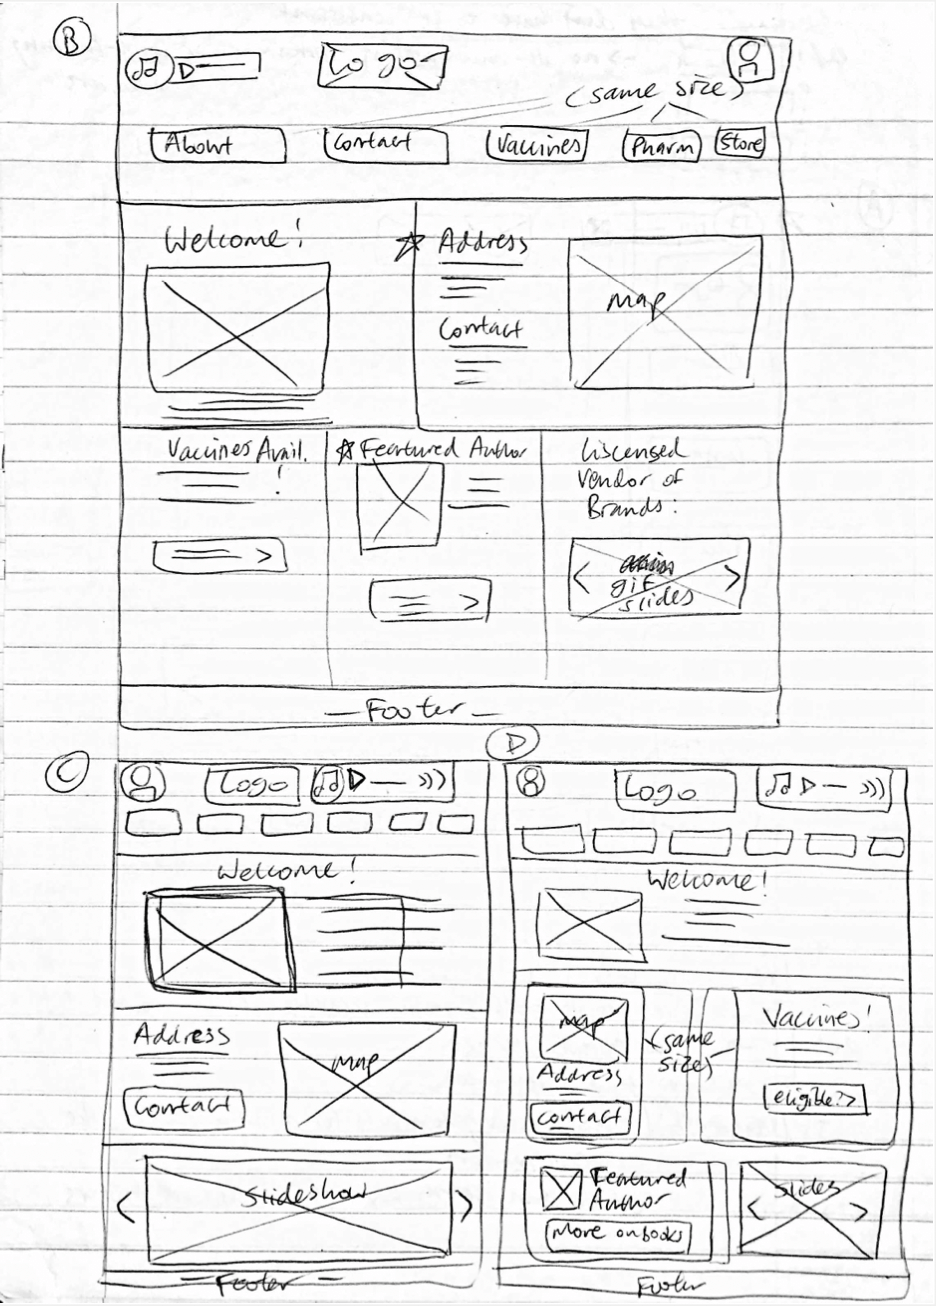 B
Logo
(same size)
About
Contact
Vaccines
Pharm
Store
Welcome!
☆ Address
Contact
map
Vaccines Avail.
!
☆ Featured Author
Liscensed
Vendor of
Brands:
gif
slides
— Footer —
C
Logo
Welcome!
Address
Contact
map
Slideshow
— Footer —
D
Logo
Welcome!
map
Address
Contact
(same
sizes)
Vaccines!
eligible? >
Featured
Author
More on books
Slides
Footer